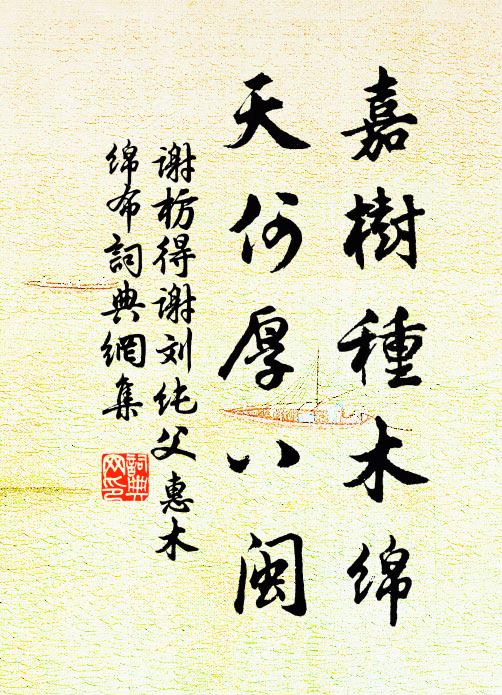 嘉樹種木綿
天何厚八閩
谢枋得谢刘纯父惠木
绵布詞典網集
詞典網印